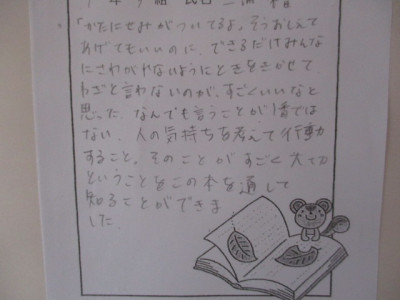 年 組 氏名
「かたにせみがついてるよ。そうおしえて
あげてもいいのに、できるだけみんな
にさわがれないようにときをさがせて
わざと言わないのが、すごくいいなと
思った。なんでも言うことが1番では
ない、人の気持ちを考えて行動
すること。そのことがすごく大切
ということをこの本を通して
知ることができま
した。